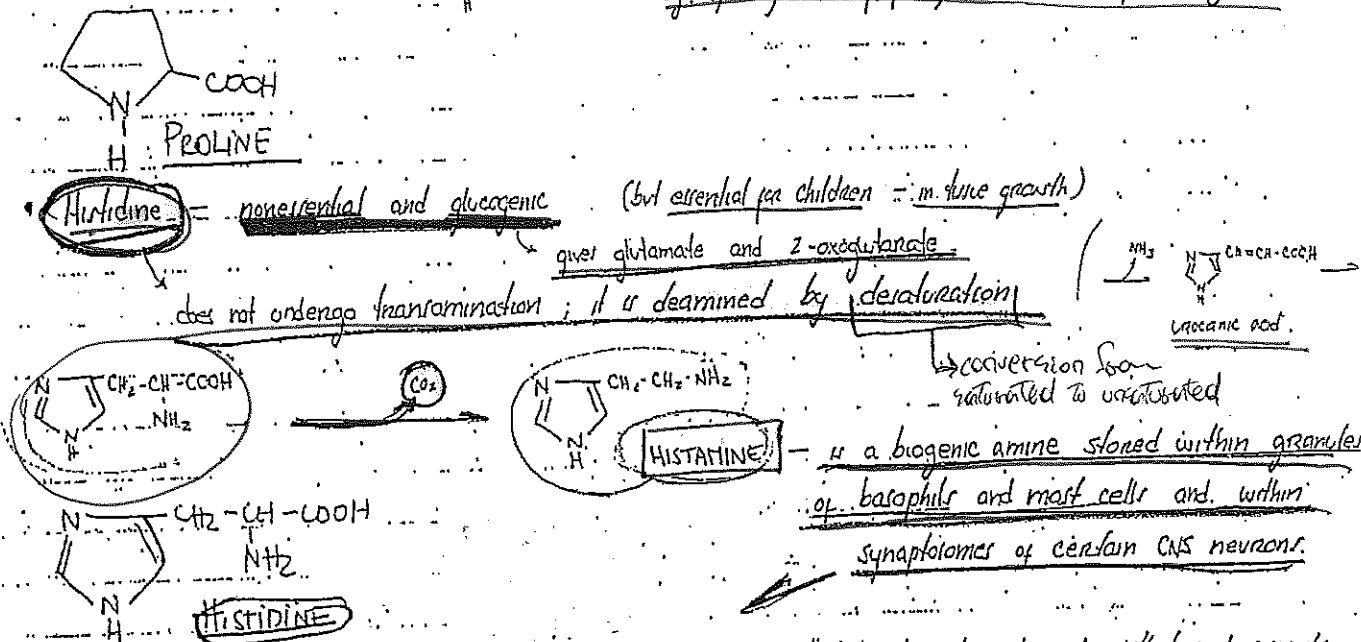 COOH
N
H
PROLINE
Histidine = nonessential and glucogenic (but essential for children - growth)
gives glutamate and 2-oxoglutarate.
does not undergo transamination; it is deamined by desaturation
NH3
N
N
H
CH=CH-COOH
urocanic acid.
conversion from
saturated to unsaturated
N
CH2-CH-COOH
NH2
N
H
CO2
N
CH2-CH2-NH2
N
H
HISTAMINE - is a biogenic amine stored within granules
of basophils and mast cells and within
synaptosomes of certain CNS neurons.
N
CH2-CH-COOH
NH2
N
H
HISTIDINE